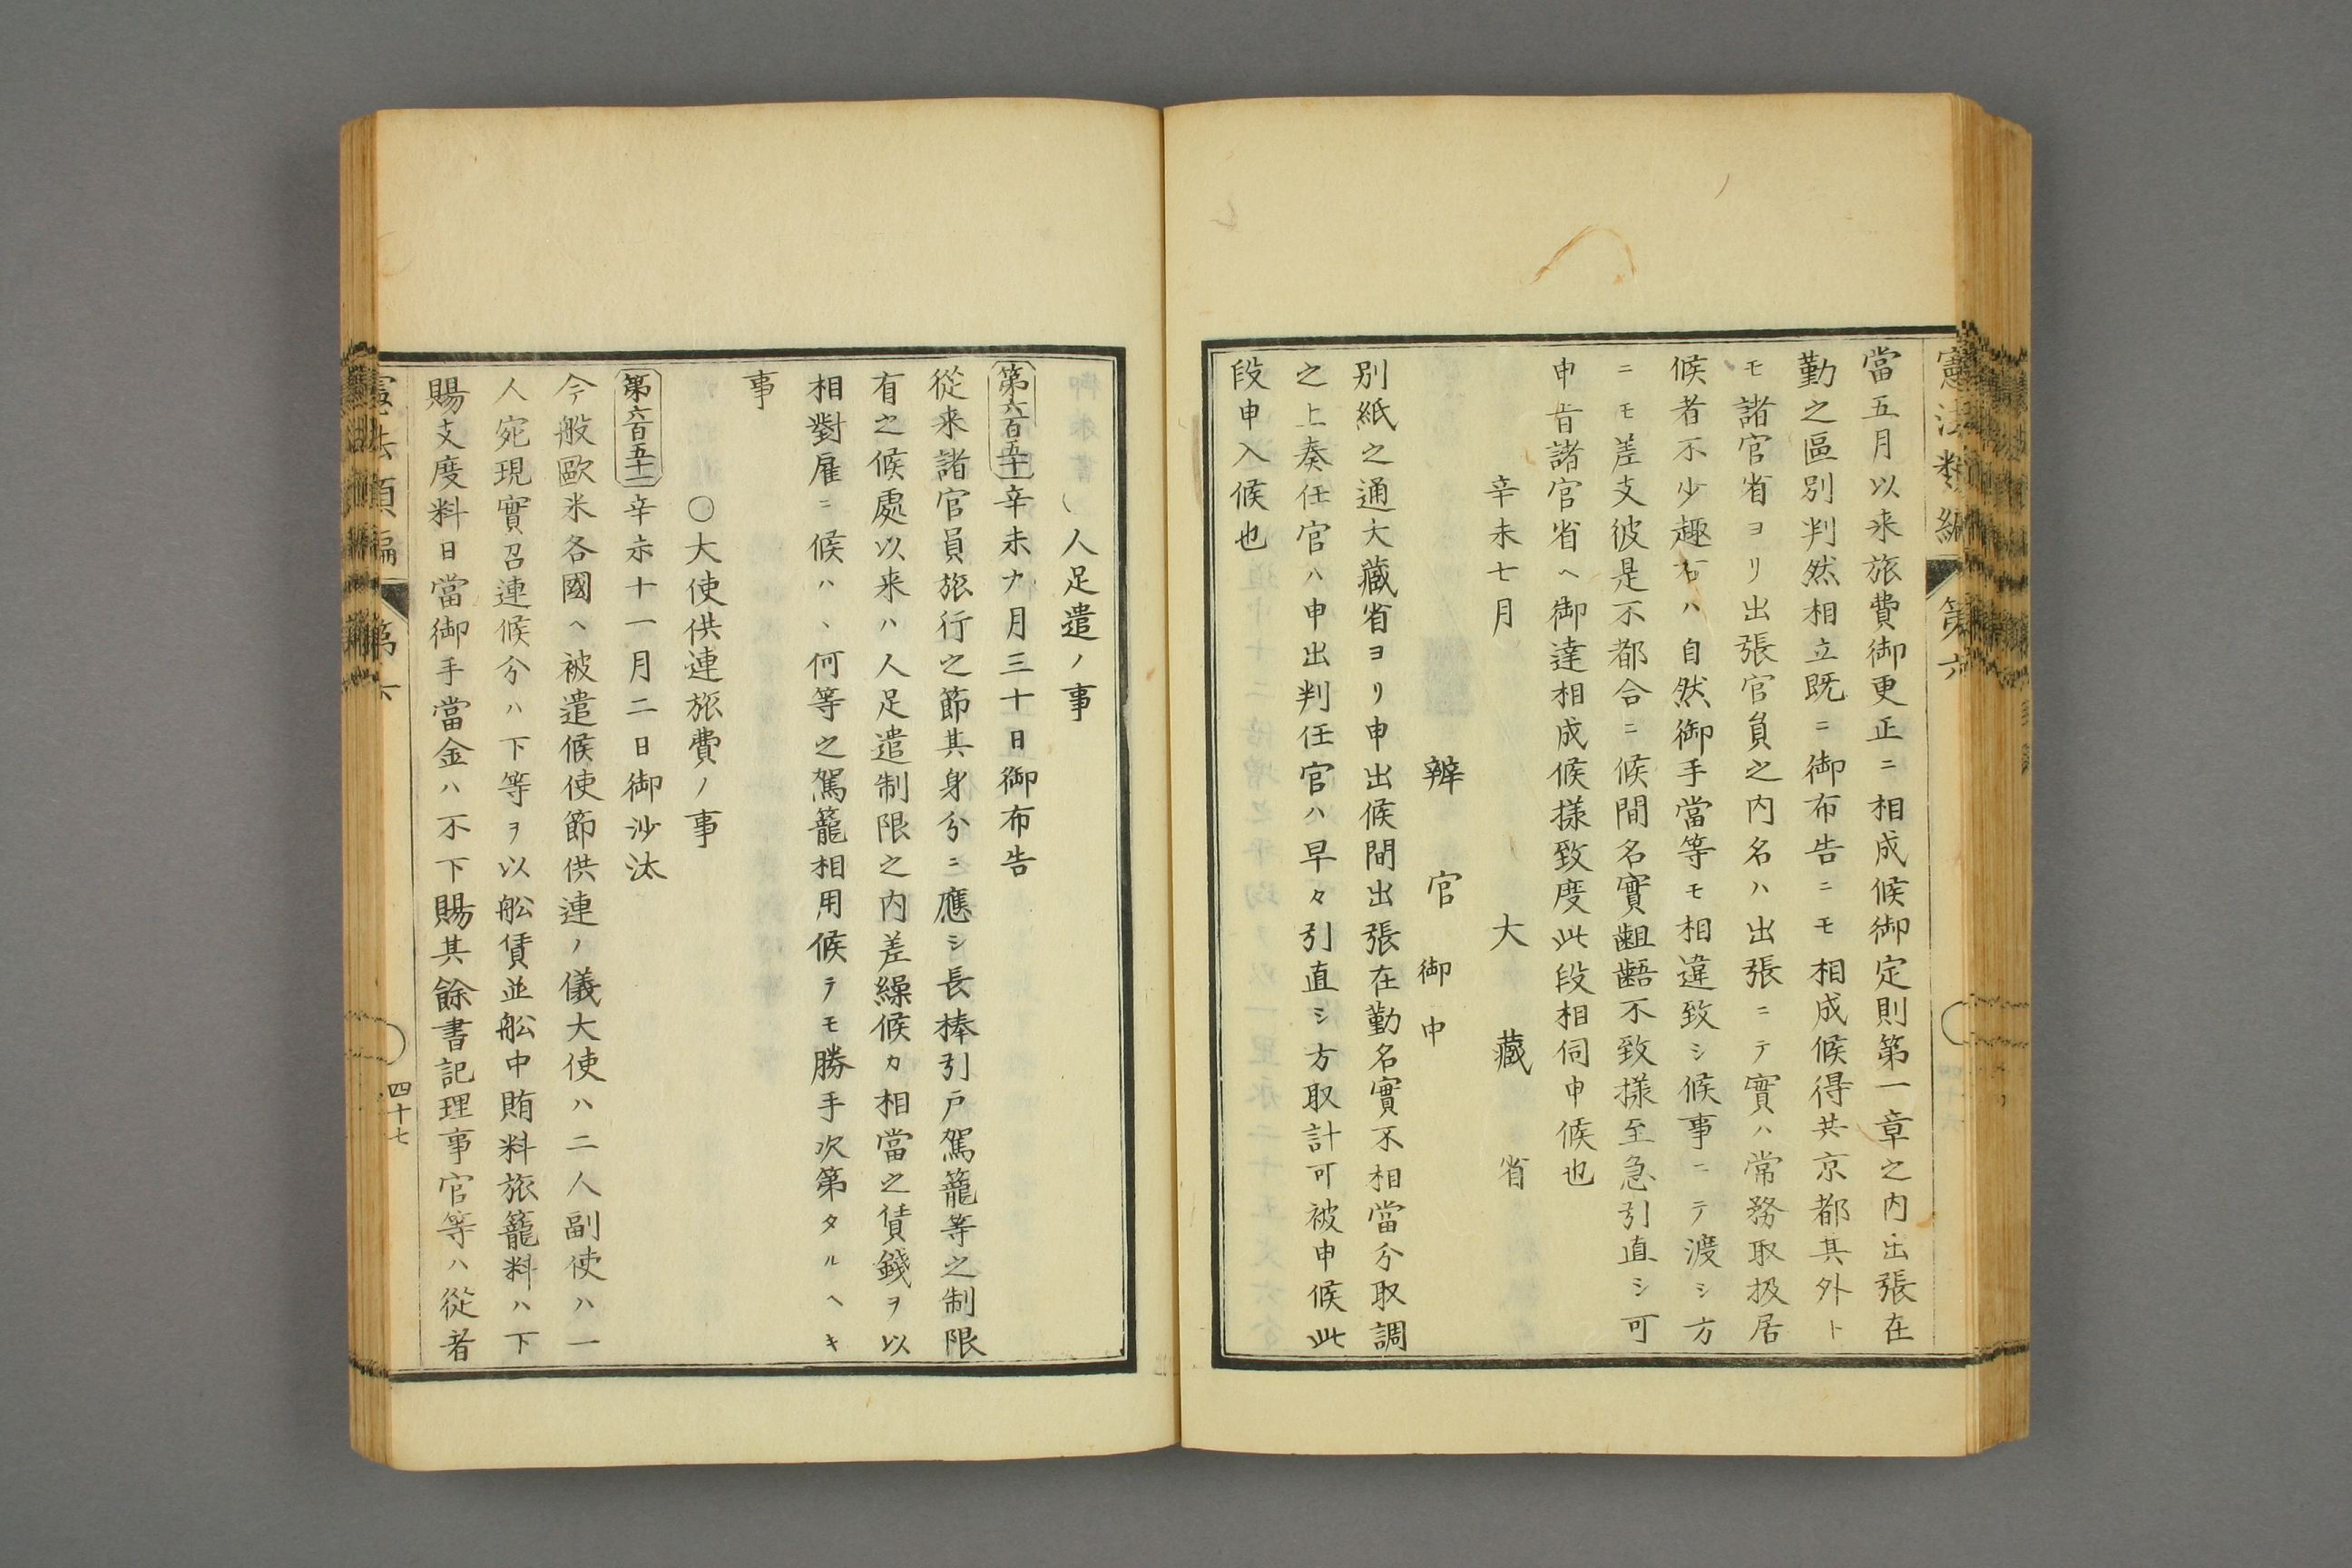 憲法類編
第六
當五月以来旅費御更正ニ相成候御定則第一章之内出張在
勤之區別判然相立既ニ御布告ニモ相成候得共京都其外ト
モ諸官省ヨリ出張官員之内名ハ出張ニテ實ハ常務取扱居
候者不少趣右ハ自然御手當等モ相違致シ候事ニテ渡シ方
ニモ差支彼是不都合ニ候間名實齟齬不致様至急引直シ可
申旨諸官省ヘ御達相成候様致度此段相伺申候也
辛未七月
大藏省
辨官御中
別紙之通大藏省ヨリ申出候間出張在勤名實不相當分取調
之上奏任官ハ申出判任官ハ早々引直シ方取計可被申候此
段申入候也
人足遣ノ事
第六百五十 辛未九月三十日御布告
從来諸官員旅行之節其身分ニ應シ長棒引戸駕籠等之制限
有之候處以来ハ人足遣制限之内差繰候カ相當之賃錢ヲ以
相對雇ニ候ハヽ何等之駕籠相用候テモ勝手次第タルヘキ
事
〇大使供連旅費ノ事
第六百五十一 辛未十一月二日御沙汰
今般歐米各國ヘ被遣候使節供連ノ儀大使ハ二人副使ハ一
人宛現實召連候分ハ下等ヲ以舩賃並舩中賄料旅籠料ハ下
賜支度料日當御手當金ハ不下賜其餘書記理事官等ハ從者
憲法類編
第六
四十七